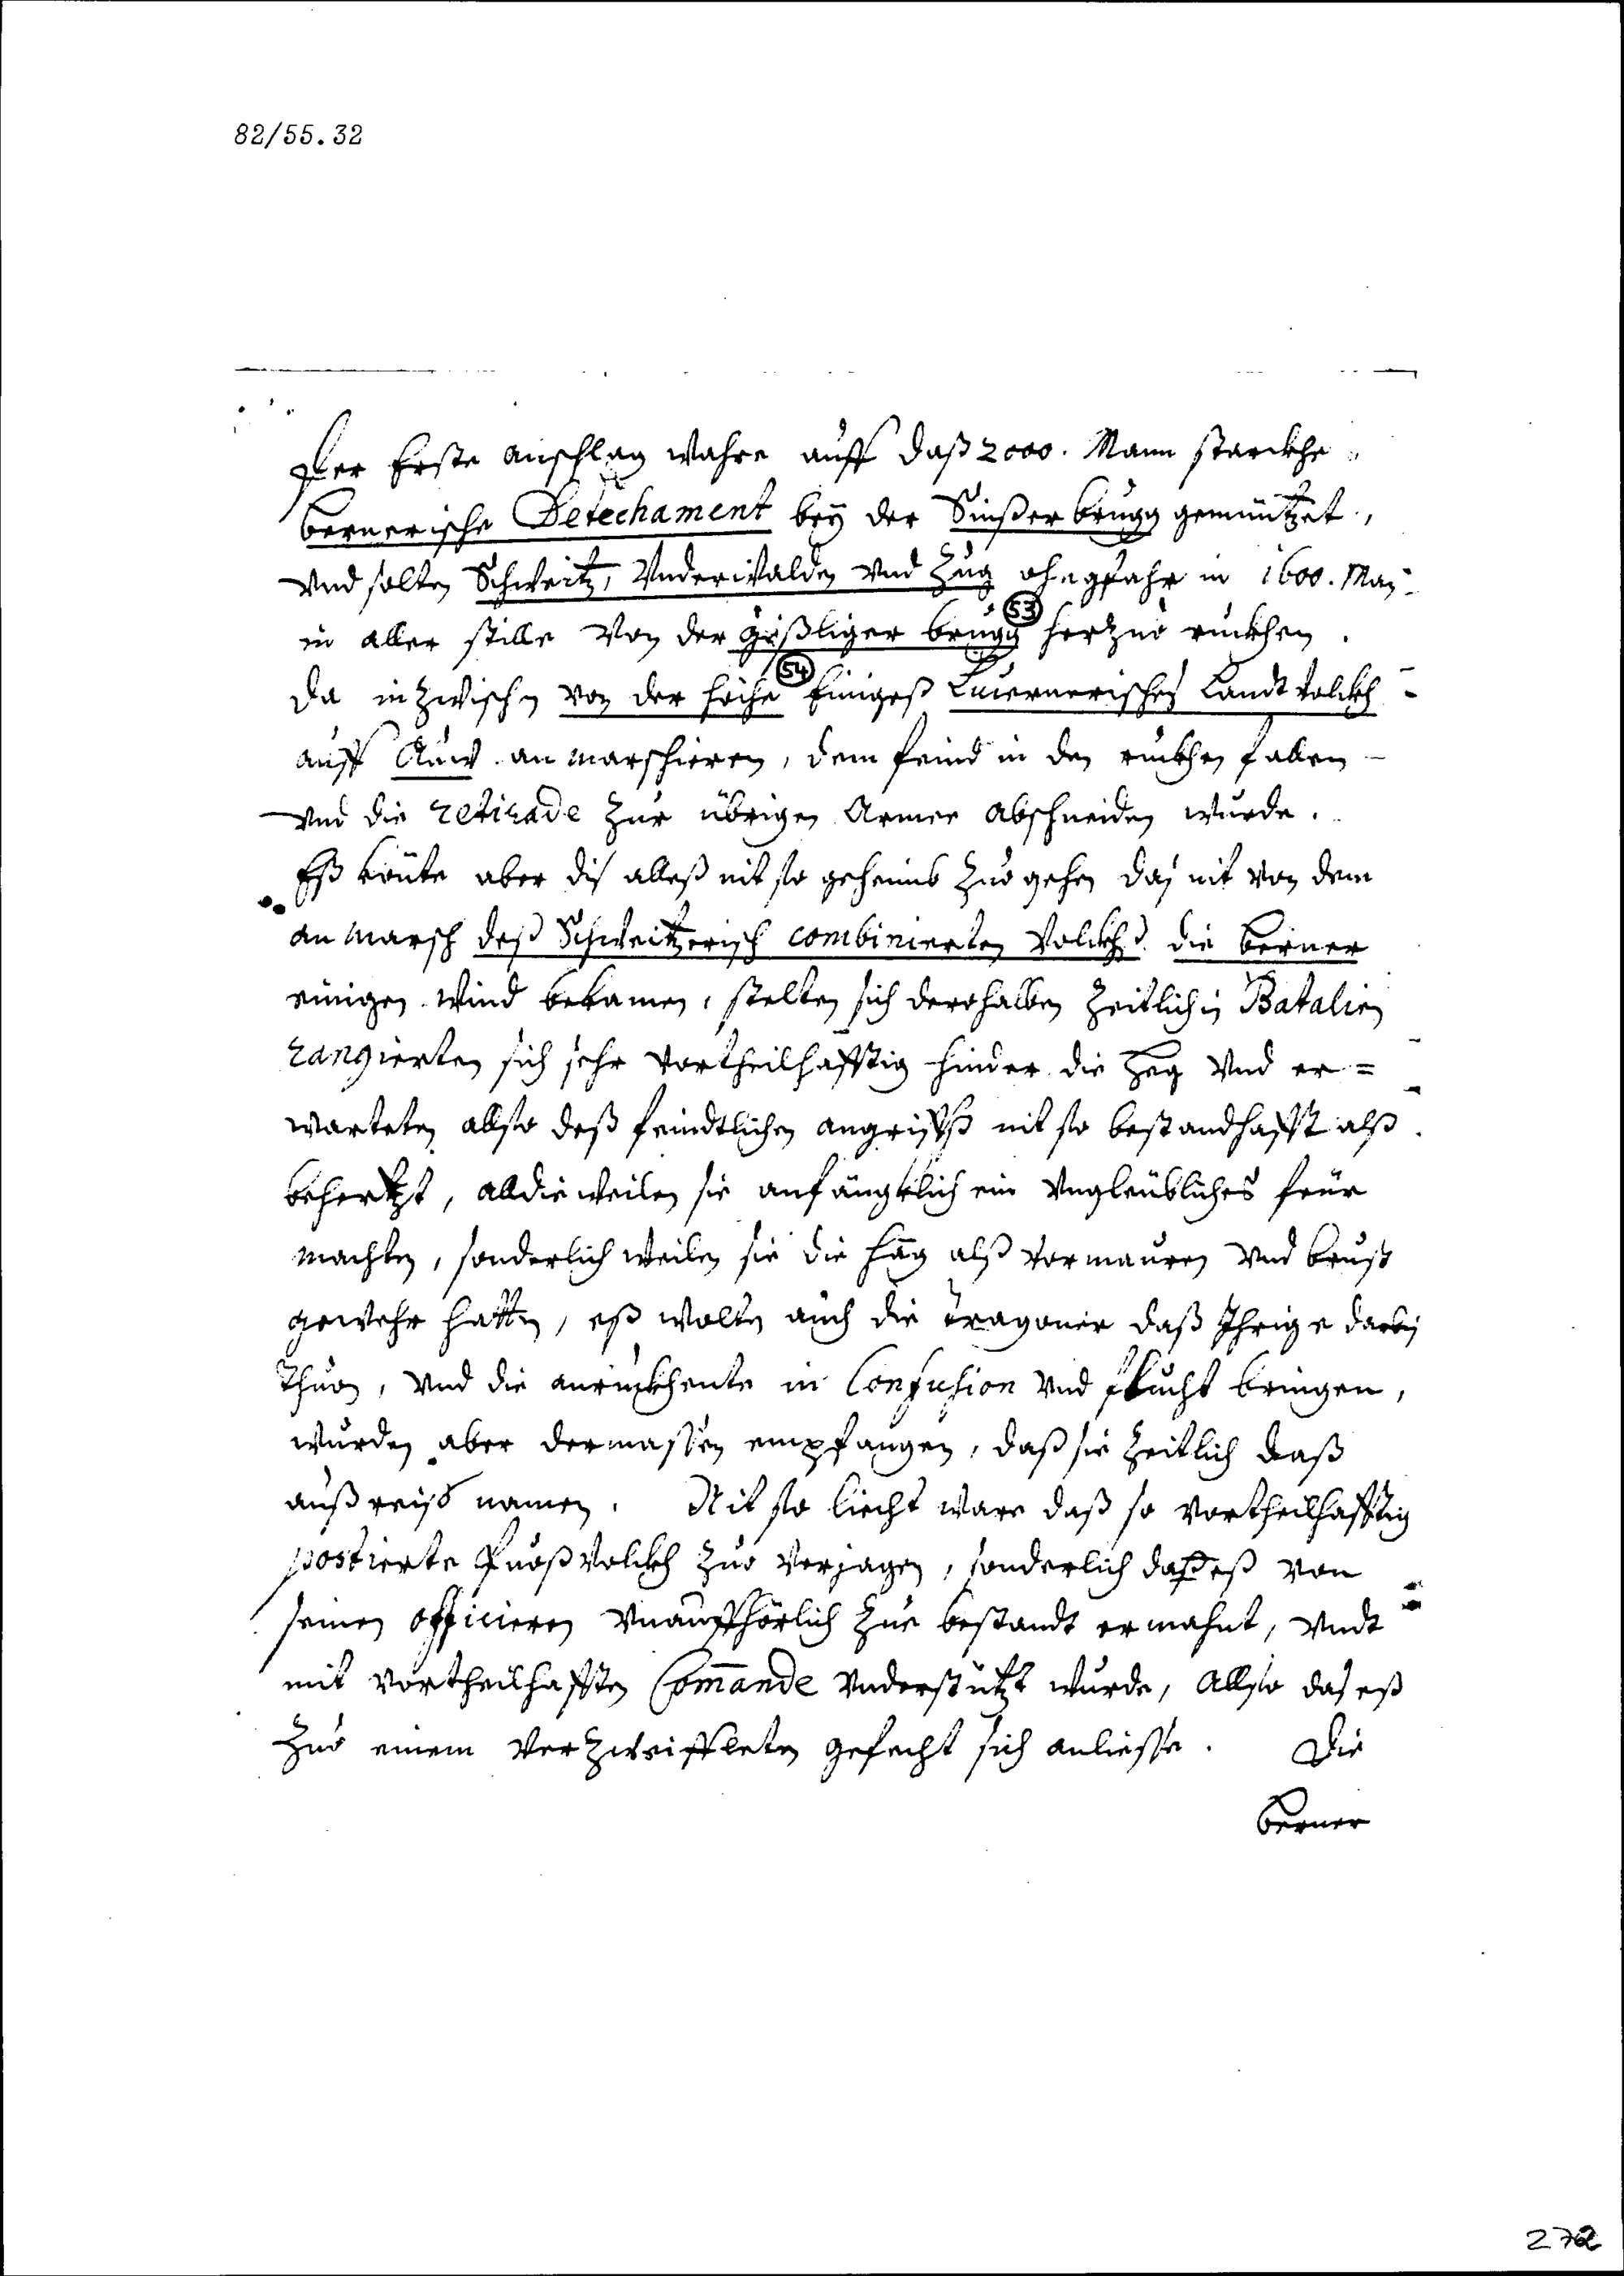 82/55.32
Der Erste anschlag wahre auff daß 2000. Mann starckhe
bernerische Detechament beÿ der Sinßer brugg gemüntzet,
Vnd solten Schweitz, Vnderwalden Vnd Zug ohngfahr in 1600. Man
in aller stille Von der gißliger brugg (53) herzuo rückhen.
Da inzwischen von der höche (54) Einiges Lucernerisches Landt volckh
auff Auw an marschieren, dem feind in den rückhen fallen
Vnd die retirade zur übrigen Armee abschneiden wurde.
Eß könte aber dis alleß nit so geheimb zuo gehen das nit von dem
an marsch deß Schweitzerisch combinierten Volckhs die berner
einigen wind bekamen, stelten sich derohalben zeitlich in Batalien
rangierten sich sehr vortheilhafftig hinder die Heg Vnd er=
warteten allso deß feindtlichen angriffß nit so bestandhafft alß
behertzt, alldieweilen sie anfängklich ein Vngleübliches feür
machten, sonderlich weilen sie die häg alß vormauren Vnd brust
gewehr hatten, eß wolten auch die tragoner daß Ihrige darbeÿ
Thuon, Vnd die anrückhente in Confusion Vnd flucht bringen,
wurden aber dermassen empfangen, daß sie zeitlich daß
außreiß namen. Nit so liecht ware daß so vortheilhafftig
postierte fuoßvolckh zuo verjagen, sonderlich da eß von
seinen officieren Vnauffhörlich zue bestandt ermahnt, Vndt
mit vortheilhafften Com̄ande Vnderstützt wurde, Allso das eß
zuo einem verzweiffleten gefecht sich anliesse. Die
berner
272